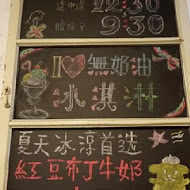 12:30
9:30
I ♥ 無奶油
冰淇淋
夏天冰淳首选
紅豆布丁牛奶